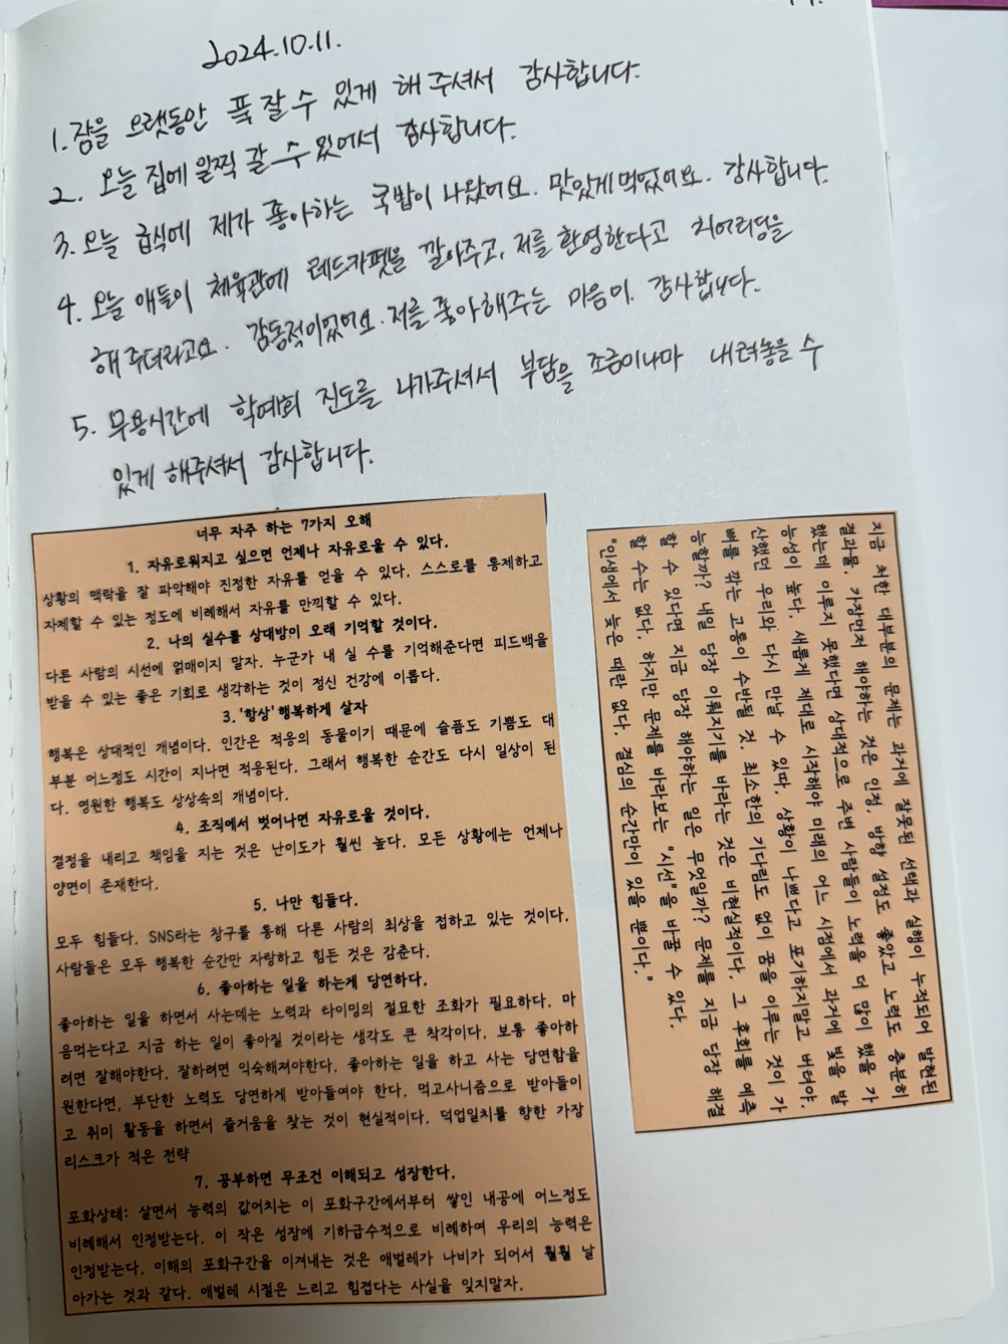 2024.10.11.
1. 잠을 오랫동안 푹 잘 수 있게 해 주셔서 감사합니다.
2. 오늘 집에 일찍 갈 수 있어서 감사합니다.
3. 오늘 급식에 제가 좋아하는 국밥이 나왔어요. 맛있게 먹었어요. 감사합니다.
4. 오늘 애들이 체육관에 레드카펫을 깔아주고, 저를 환영한다고 치어리딩을
해 주더라고요. 감동적이었어요. 저를 좋아해주는 마음이 감사합니다.
5. 무용시간에 학예회 진도를 나가주셔서 부담을 조금이나마 내려놓을 수
있게 해주셔서 감사합니다.
너무 자주 하는 7가지 오해
1. 자유로워지고 싶으면 언제나 자유로울 수 있다.
상황의 맥락을 잘 파악해야 진정한 자유를 얻을 수 있다. 스스로를 통제하고
자제할 수 있는 정도에 비례해서 자유를 만끽할 수 있다.
2. 나의 실수를 상대방이 오래 기억할 것이다.
다른 사람의 시선에 얽매이지 말자. 누군가 내 실 수를 기억해준다면 피드백을
받을 수 있는 좋은 기회로 생각하는 것이 정신 건강에 이롭다.
3. '항상' 행복하게 살자
행복은 상대적인 개념이다. 인간은 적응의 동물이기 때문에 슬픔도 기쁨도 대
부분 어느정도 시간이 지나면 적응된다. 그래서 행복한 순간도 다시 일상이 된
다. 영원한 행복도 상상속의 개념이다.
4. 조직에서 벗어나면 자유로울 것이다.
결정을 내리고 책임을 지는 것은 난이도가 훨씬 높다. 모든 상황에는 언제나
양면이 존재한다.
5. 나만 힘들다.
모두 힘들다. SNS라는 창구를 통해 다른 사람의 최상을 접하고 있는 것이다.
사람들은 모두 행복한 순간만 자랑하고 힘든 것은 감춘다.
6. 좋아하는 일을 하는게 당연하다.
좋아하는 일을 하면서 사는데는 노력과 타이밍의 절묘한 조화가 필요하다. 마
음먹는다고 지금 하는 일이 좋아질 것이라는 생각도 큰 착각이다. 보통 좋아하
려면 잘해야한다. 잘하려면 익숙해져야한다. 좋아하는 일을 하고 사는 당연함을
원한다면, 부단한 노력도 당연하게 받아들여야 한다. 먹고사니즘으로 받아들이
고 취미 활동을 하면서 즐거움을 찾는 것이 현실적이다. 덕업일치를 향한 가장
리스크가 적은 전략
7. 공부하면 무조건 이해되고 성장한다.
포화상태: 살면서 능력의 값어치는 이 포화구간에서부터 쌓인 내공에 어느정도
비례해서 인정받는다. 이 작은 성장에 기하급수적으로 비례하여 우리의 능력은
인정받는다. 이해의 포화구간을 이겨내는 것은 애벌레가 나비가 되어서 훨훨 날
아가는 것과 같다. 애벌레 시절은 느리고 힘겹다는 사실을 잊지말자.
지금 처한 대부분의 문제는 과거에 잘못된 선택과 실행이 누적되어 발현된
결과물. 가장먼저 해야하는 것은 인정. 방향 설정도 좋았고 노력도 충분히
했는데 이루지 못했다면 상대적으로 주변 사람들이 노력을 더 많이 했을 가
능성이 높다. 새롭게 제대로 시작해야 미래의 어느 시점에서 과거에 빛을 발
산했던 우리와 다시 만날 수 있다. 상황이 나쁘다고 포기하지말고 버텨야.
뼈를 깎는 고통이 수반될 것. 최소한의 기다림도 없이 꿈을 이루는 것이 가
능할까? 내일 당장 이뤄지기를 바라는 것은 비현실적이다. 그 후회를 예측
할 수 있다면 지금 당장 해야하는 일은 무엇일까? 문제를 지금 당장 해결
할 수는 없다. 하지만 문제를 바라보는 "시선"을 바꿀 수 있다.
"인생에서 늦은 때란 없다. 결심의 순간만이 있을 뿐이다."